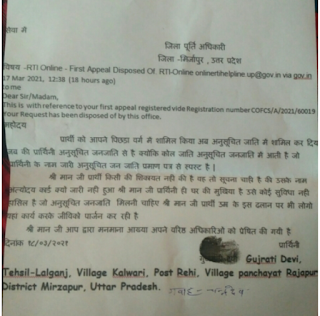 सेवा में
जिला पूर्ति अधिकारी
जिला -मिर्जापुर , उत्तर प्रदेश
विषय -RTI Online - First Appeal Disposed Of. RTI-Online onlinertihelpline.up@gov.in via gov.in
17 Mar 2021, 12:38 (18 hours ago)
to me
Dear Sir/Madam,
This is with reference to your first appeal registered vide Registration number COFCS/A/2021/60019
Your Request has been disposed of by this office.
महोदय
प्रार्थी को आपने पिछड़ा वर्ग में शामिल किया अब अनुसूचित जाति में शामिल कर दिया
जब की प्रार्थिनी अनुसूचित जनजाति से है क्योंकि कोल जाति अनुसूचित जनजाति में आती है जो
प्रार्थिनी के नाम जारी अनुसूचित जन जाति प्रमाण पत्र से स्पस्ट है |
श्री मान जी प्रार्थी किसी की शिकायत नहीं की है वह तो सूचना चाही है की उसके नाम
अन्त्योदय कार्ड क्यों जारी नहीं हुआ श्री मान जी प्रार्थिनी ही घर की मुखिया है उसे कोई सुविधा नहीं
हासिल है जो अनुसूचित जनजाति मिलनी चाहिए श्री मान जी प्रार्थी उम्र के इस ढलान पर भी लोगो
यहा कार्य करके जीविको पार्जन कर रही है
श्री मान जी आप द्वारा मनमाना आख्या अपने वरिष्ठ अधिकारिओं को प्रेषित की गयी है
दिनांक १८/०३/२०२१ प्रार्थिनी
Gujrati Devi,
Tehsil-Lalganj, Village Kalwari, Post Rehi, Village panchayat Rajapur
District Mirzapur, Uttar Pradesh.